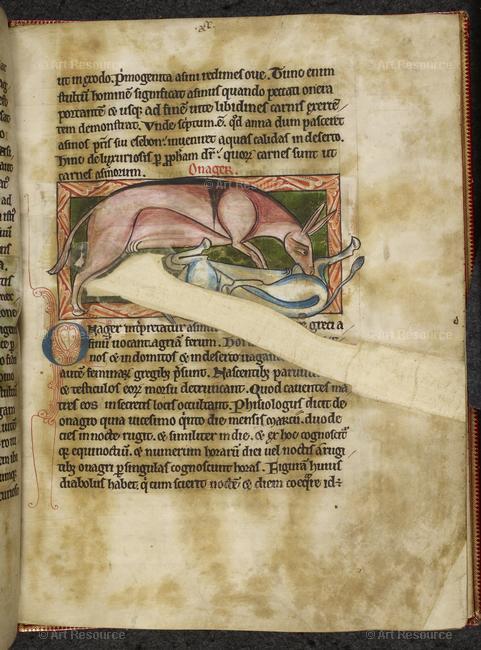 © Art Resource © Art Resource
ut in exodo. Primogenita asini redimes oue. Tunc enim
stultum hominem significat asinus quando peccati onera
portantem & usq; ad finem uite libidines carnis exercen
tem demonstrat. Unde scriptum .e. quod anna dum pasceret
asinos patris sui esebon. inuenerit aquas calidas in deserto.
Hinc de luxuriosis per prophetam dr. quorum carnes sunt ut
carnes asinorum. Onager.
© Art Resource
Onager interpretatur asinus greci a
sinum uocant agram ferum.
nos & indomitos & in deserto uagan
autem feminarum gregibus presunt. Nascentibus
& testiculos eorum morsu detruncant. Quod cauentes ma
tres eos in secretis locis occultant. Phisiologus dicit de
onagro quia uicesimo quinto die mensis marcii. duode
cies in nocte rugit. & similiter in die. & ex hoc cognoscitur
quia equinoctium .e. & numerum horarum diei uel noctis a rugi
tibus onagri per singulas cognoscunt horas. Figuram huius
diabolus habet. qui cum scierit noctem & diem coequare id÷
© Art Resource © Art Resource